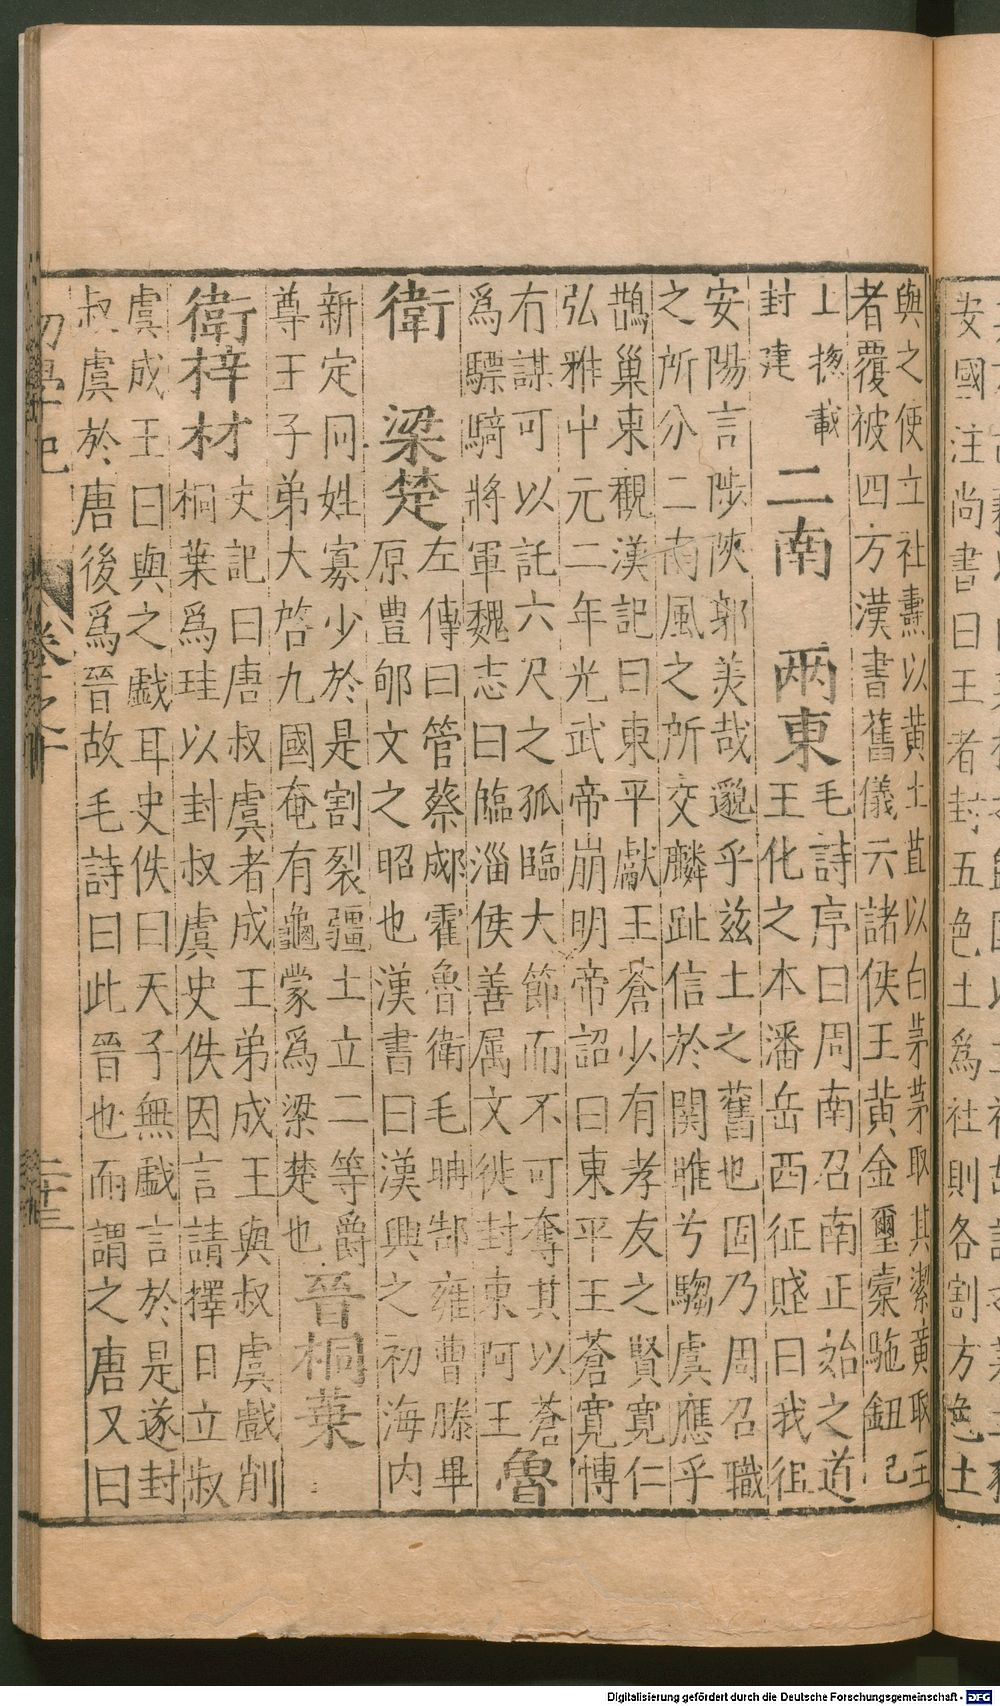 安國注尚書曰王者封五色土爲社則各割方色土
與之使立社燾以黃土苴以白茅茅取其潔黃取王
者覆被四方漢書舊儀云諸侯王黃金璽橐駞鈕已
上揔載
封建
二南 兩東
毛詩序曰周南召南正始之道
王化之本潘岳西征賤曰我徂
安陽言陟陝郛美哉邈乎兹土之舊也固乃周召職
之所分二南風之所交麟趾信於関雎兮騶虞應乎
鵲巢東觀漢記曰東平獻王蒼少有孝友之賢寛仁
弘雅中元二年光武帝崩明帝詔曰東平王蒼寛博
有謀可以託六尺之孤臨大節而不可奪其以蒼
爲驃騎將軍魏志曰臨淄侯善属文徙封東阿王
魯
衛 梁楚
左傳曰管蔡郕霍魯衛毛聃郜雍曹滕畢
原豊郇文之昭也漢書曰漢興之初海内
新定同姓寡少於是割裂疆土立二等爵
尊王子弟大啓九國奄有龜蒙爲梁楚也
晉桐葉
衛梓材
史記曰唐叔虞者成王弟成王與叔虞戲削
桐葉爲珪以封叔虞史佚因言請擇日立叔
虞成王曰與之戯耳史佚曰天子無戯言於是遂封
叔虞於唐後爲晉故毛詩曰此晉也而謂之唐又曰
初學記